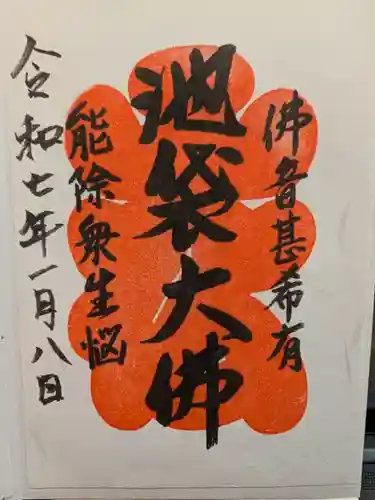 佛音甚希有
池袋大佛
能除衆生惱
令和七年一月八日